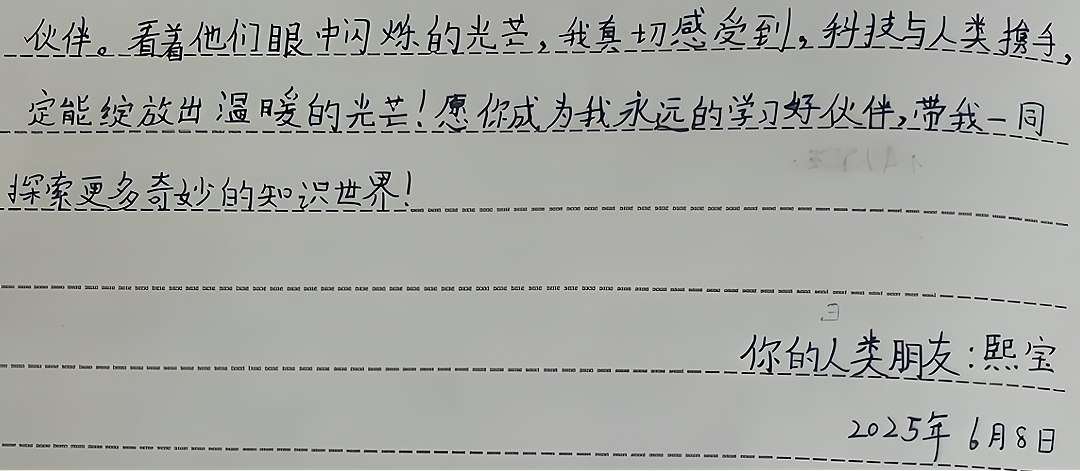 伙伴。看着他们眼中闪烁的光芒,我真切感受到,科技与人类携手,
定能绽放出温暖的光芒!愿你成为我永远的学习好伙伴,带我一同
探索更多奇妙的知识世界!
你的人类朋友:熙宝
2025年6月8日